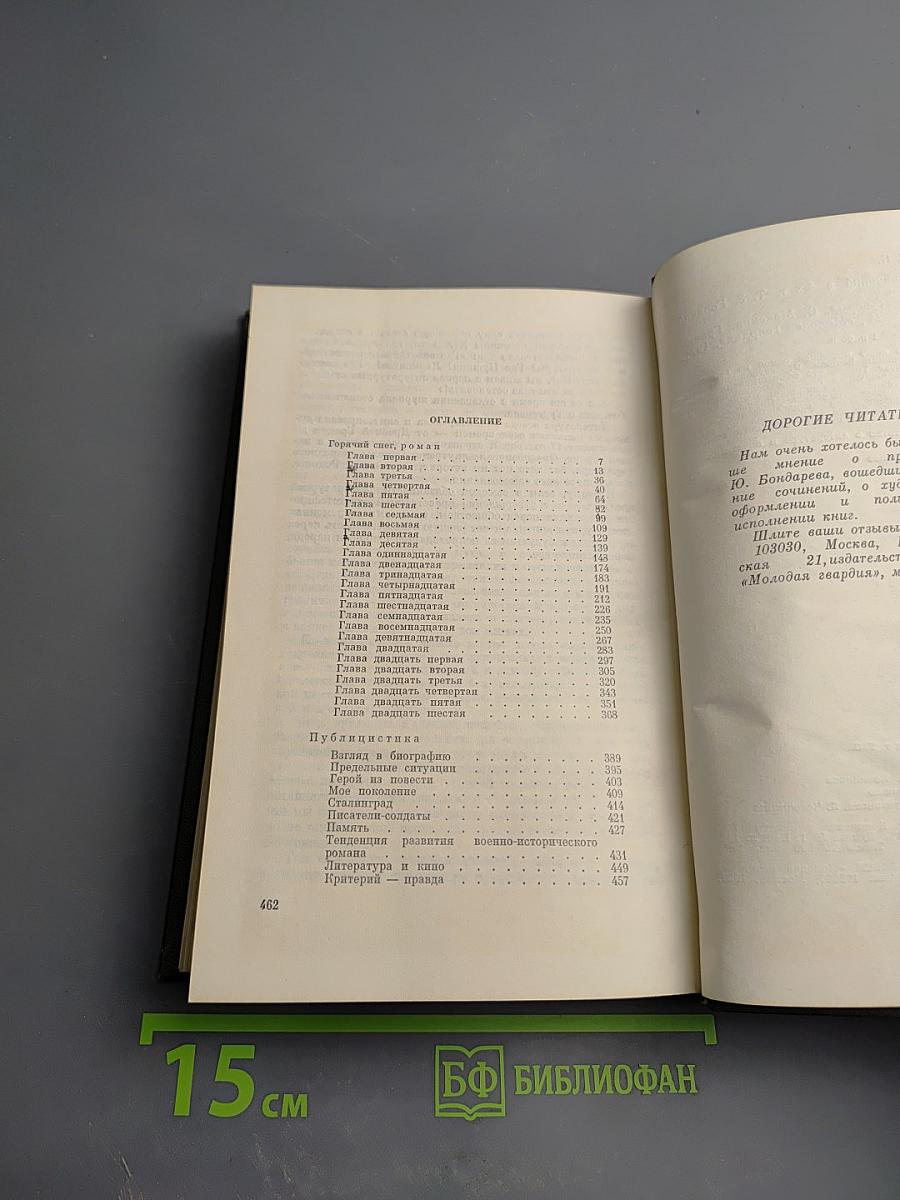 ОГЛАВЛЕНИЕ
Горячий снег, роман
Глава первая . . . . . . . . . . 7
Глава вторая . . . . . . . . . . 13
Глава третья . . . . . . . . . . 36
Глава четвертая . . . . . . . . . . 40
Глава пятая . . . . . . . . . . 64
Глава шестая . . . . . . . . . . 82
Глава седьмая . . . . . . . . . . 99
Глава восьмая . . . . . . . . . . 109
Глава девятая . . . . . . . . . . 129
Глава десятая . . . . . . . . . . 139
Глава одиннадцатая . . . . . . . . . . 148
Глава двенадцатая . . . . . . . . . . 174
Глава тринадцатая . . . . . . . . . . 183
Глава четырнадцатая . . . . . . . . . . 191
Глава пятнадцатая . . . . . . . . . . 212
Глава шестнадцатая . . . . . . . . . . 226
Глава семнадцатая . . . . . . . . . . 235
Глава восемнадцатая . . . . . . . . . . 250
Глава девятнадцатая . . . . . . . . . . 267
Глава двадцатая . . . . . . . . . . 283
Глава двадцать первая . . . . . . . . . . 297
Глава двадцать вторая . . . . . . . . . . 305
Глава двадцать третья . . . . . . . . . . 320
Глава двадцать четвертая . . . . . . . . . . 343
Глава двадцать пятая . . . . . . . . . . 351
Глава двадцать шестая . . . . . . . . . . 368
Публицистика
Взгляд в биографию . . . . . . . . . . 389
Предельные ситуации . . . . . . . . . . 395
Герой из повести . . . . . . . . . . 403
Мое поколение . . . . . . . . . . 409
Сталинград . . . . . . . . . . 414
Писатели-солдаты . . . . . . . . . . 421
Память . . . . . . . . . . 427
Тенденция развития военно-исторического
романа . . . . . . . . . . 431
Литература и кино . . . . . . . . . . 449
Критерий — правда . . . . . . . . . . 457
462
ДОРОГИЕ ЧИТАТ
Нам очень хотелось бы
ше мнение о пр
Ю. Бондарева, вошедши
ние сочинений, о худ
оформлении и поли
исполнении книг.
Шлите ваши отзывы
103030, Москва,
ская 21, издательств
«Молодая гвардия», м
15 см
БФ БИБЛИОФАН